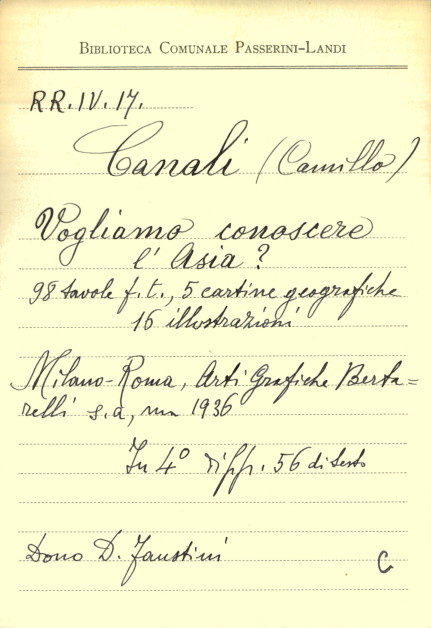 BIBLIOTECA COMUNALE PASSERINI-LANDI
RR.IV.17.
Canali (Camillo)
Vogliamo conoscere
l'Asia?
98 tavole f.t., 5 cartine geografiche
16 illustrazioni
Milano-Roma, Arti Grafiche Berta=
relli s.a, ma 1936
In 4° di pp. 56 di testo
Dono D. Faustini
C